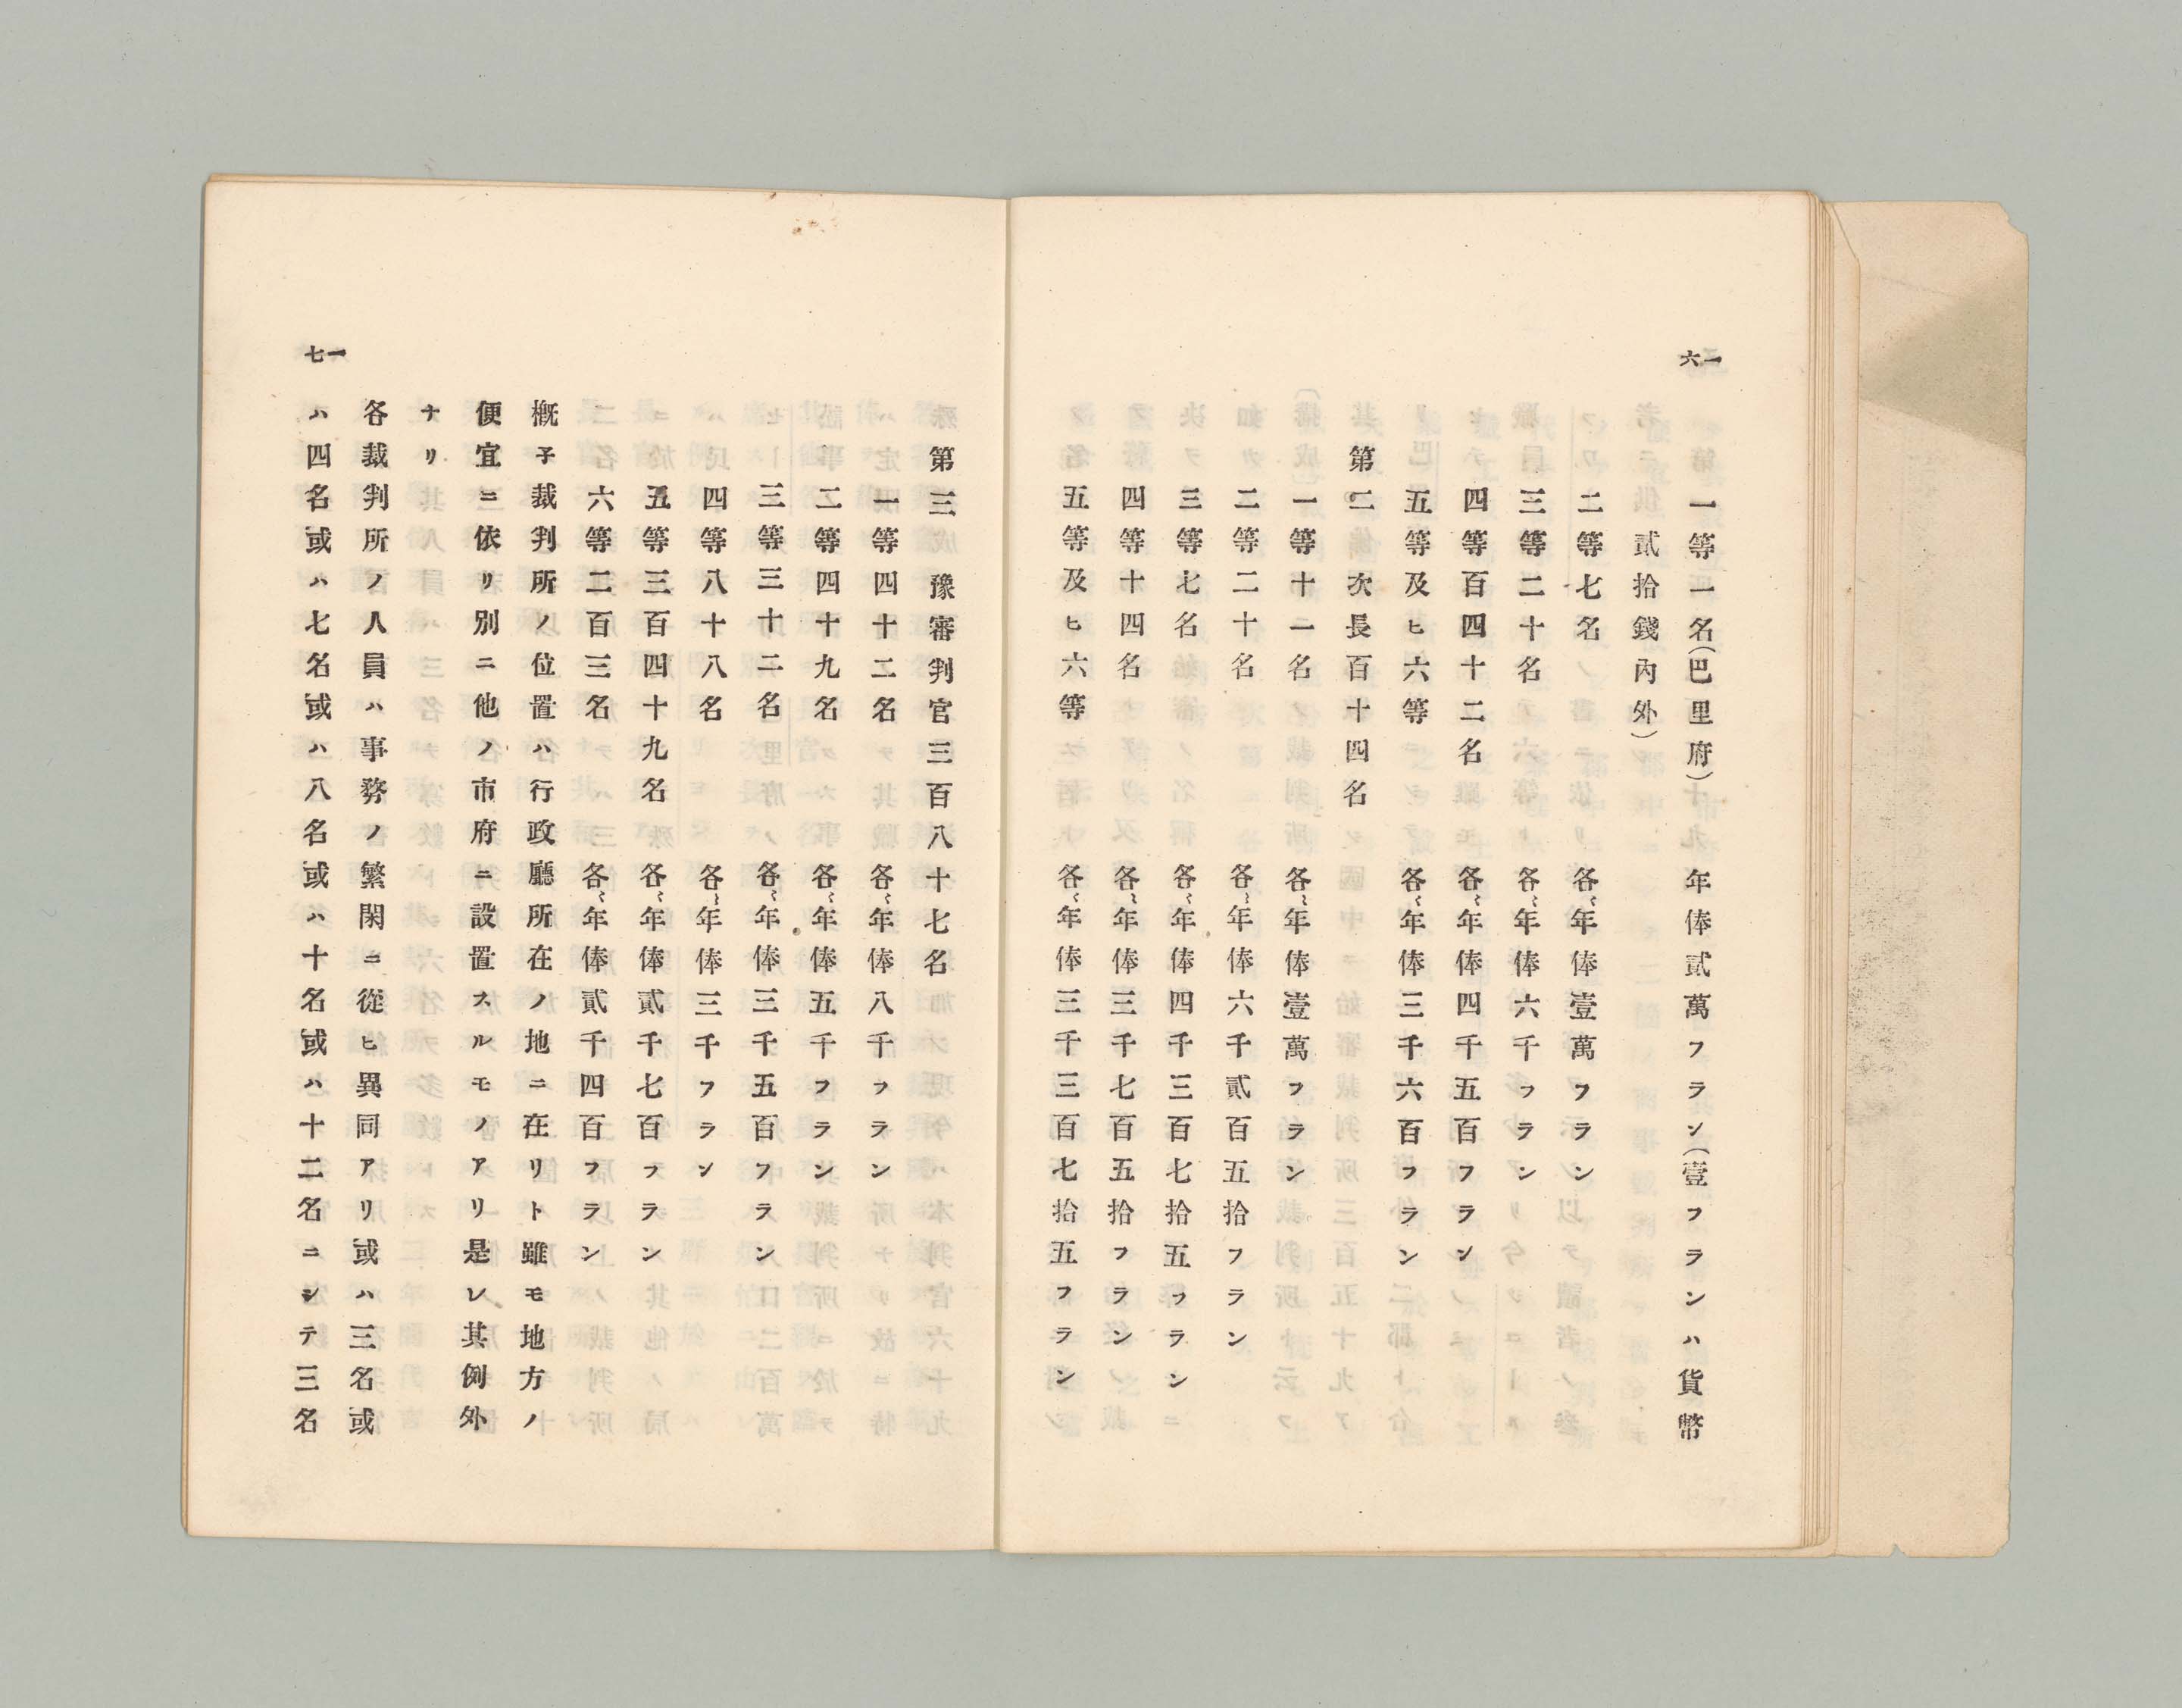 一六
一等一名(巴里府)　年俸貳萬フラン(壹フランハ貨幣
貳拾錢內外)
二等七名　各〻年俸壹萬フラン
三等二十名　各〻年俸六千フラン
四等百四十二名　各〻年俸四千五百フラン
五等及ヒ六等　各〻年俸三千六百フラン
第二　次長百十四名
一等十一名　各〻年俸壹萬フラン
二等二十名　各〻年俸六千貳百五拾フラン
三等七名　各〻年俸四千三百七拾五フラン
四等十四名　各〻年俸三千七百五拾フラン
五等及ヒ六等　各〻年俸三千三百七拾五フラン
一七
第三　豫審判官三百八十七名
一等四十二名　各〻年俸八千フラン
二等四十九名　各〻年俸五千フラン
三等三十二名　各〻年俸三千五百フラン
四等八十八名　各〻年俸三千フラン
五等三百四十九名　各〻年俸貳千七百フラン
六等二百三名　各〻年俸貳千四百フラン
槪子裁判所ノ位置ハ行政廳所在ノ地ニ在リト雖モ地方ノ
便宜ニ依リ別ニ他ノ市府ニ設置スルモノアリ是レ其例外
ナリ
各裁判所ノ人員ハ事務ノ繁閑ニ從ヒ異同アリ或ハ三名或
ハ四名或ハ七名或ハ八名或ハ十名或ハ十二名ニシテ三名